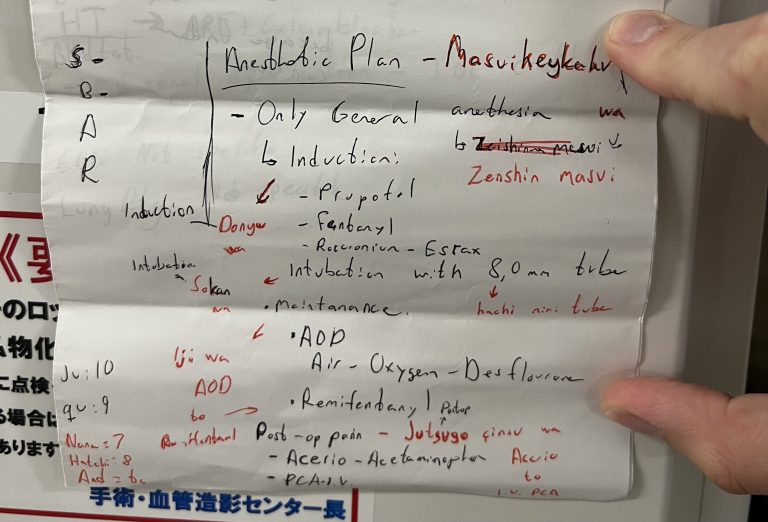 S -
B -
A
R
Anesthetic Plan - Masuikeykaku
- Only General anethesia wa
Zenshin masui
↳ Induction:
- Propofol
Induction
Donyu
wa
- Fentanyl
- Rocronium - Eslax
Intubation
Sokan
wa
Intubation with 8,0 mm tube
hachi miri tube
• Maintanance.
Iji wa
AOD
to
Remifentanil
• AOD
Air - Oxygen - Desflurane
• Remifentanyl
Postop
Post-op pain - Jutsugo
wa
- Acerio - Acetaminophen
Acerio
to
i.v. PCA
- PCA-i.v.
Ju: 10
qu: 9
Nana = 7
Hatchi = 8
And = to
《要
のロッ
物化
に点検
る場合は
あります
手術・血管造影センター長